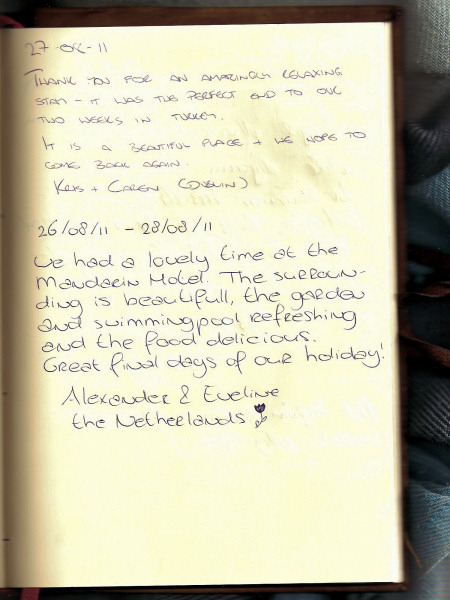 27-08-11
THANK YOU FOR AN AMAZINGLY RELAXING
STAY - IT WAS THE PERFECT END TO OUR
TWO WEEKS IN TURKEY.
IT IS A BEAUTIFUL PLACE + WE HOPE TO
COME BACK AGAIN.
KRIS + CAREN (DUBLIN)
26/08/11 - 28/08/11
We had a lovely time at the
Mandarin Hotel. The surroun-
ding is beautifull, the garden
and swimmingpool refreshing
and the food delicious.
Great final days of our holiday!
Alexander & Eveline
the Netherlands